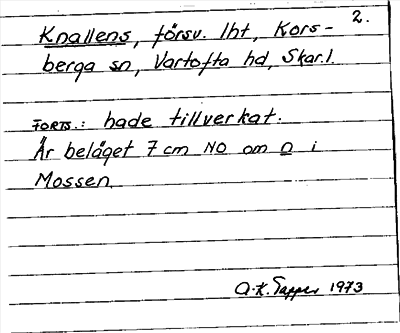 2.
Knallens, försv. lht, Kors-
berga sn, Vartofta hd, Skar.l.
FORTS.: hade tillverkat.
Är beläget 7 cm NO om n i
Mossen.
A.-K. Tapper 1973